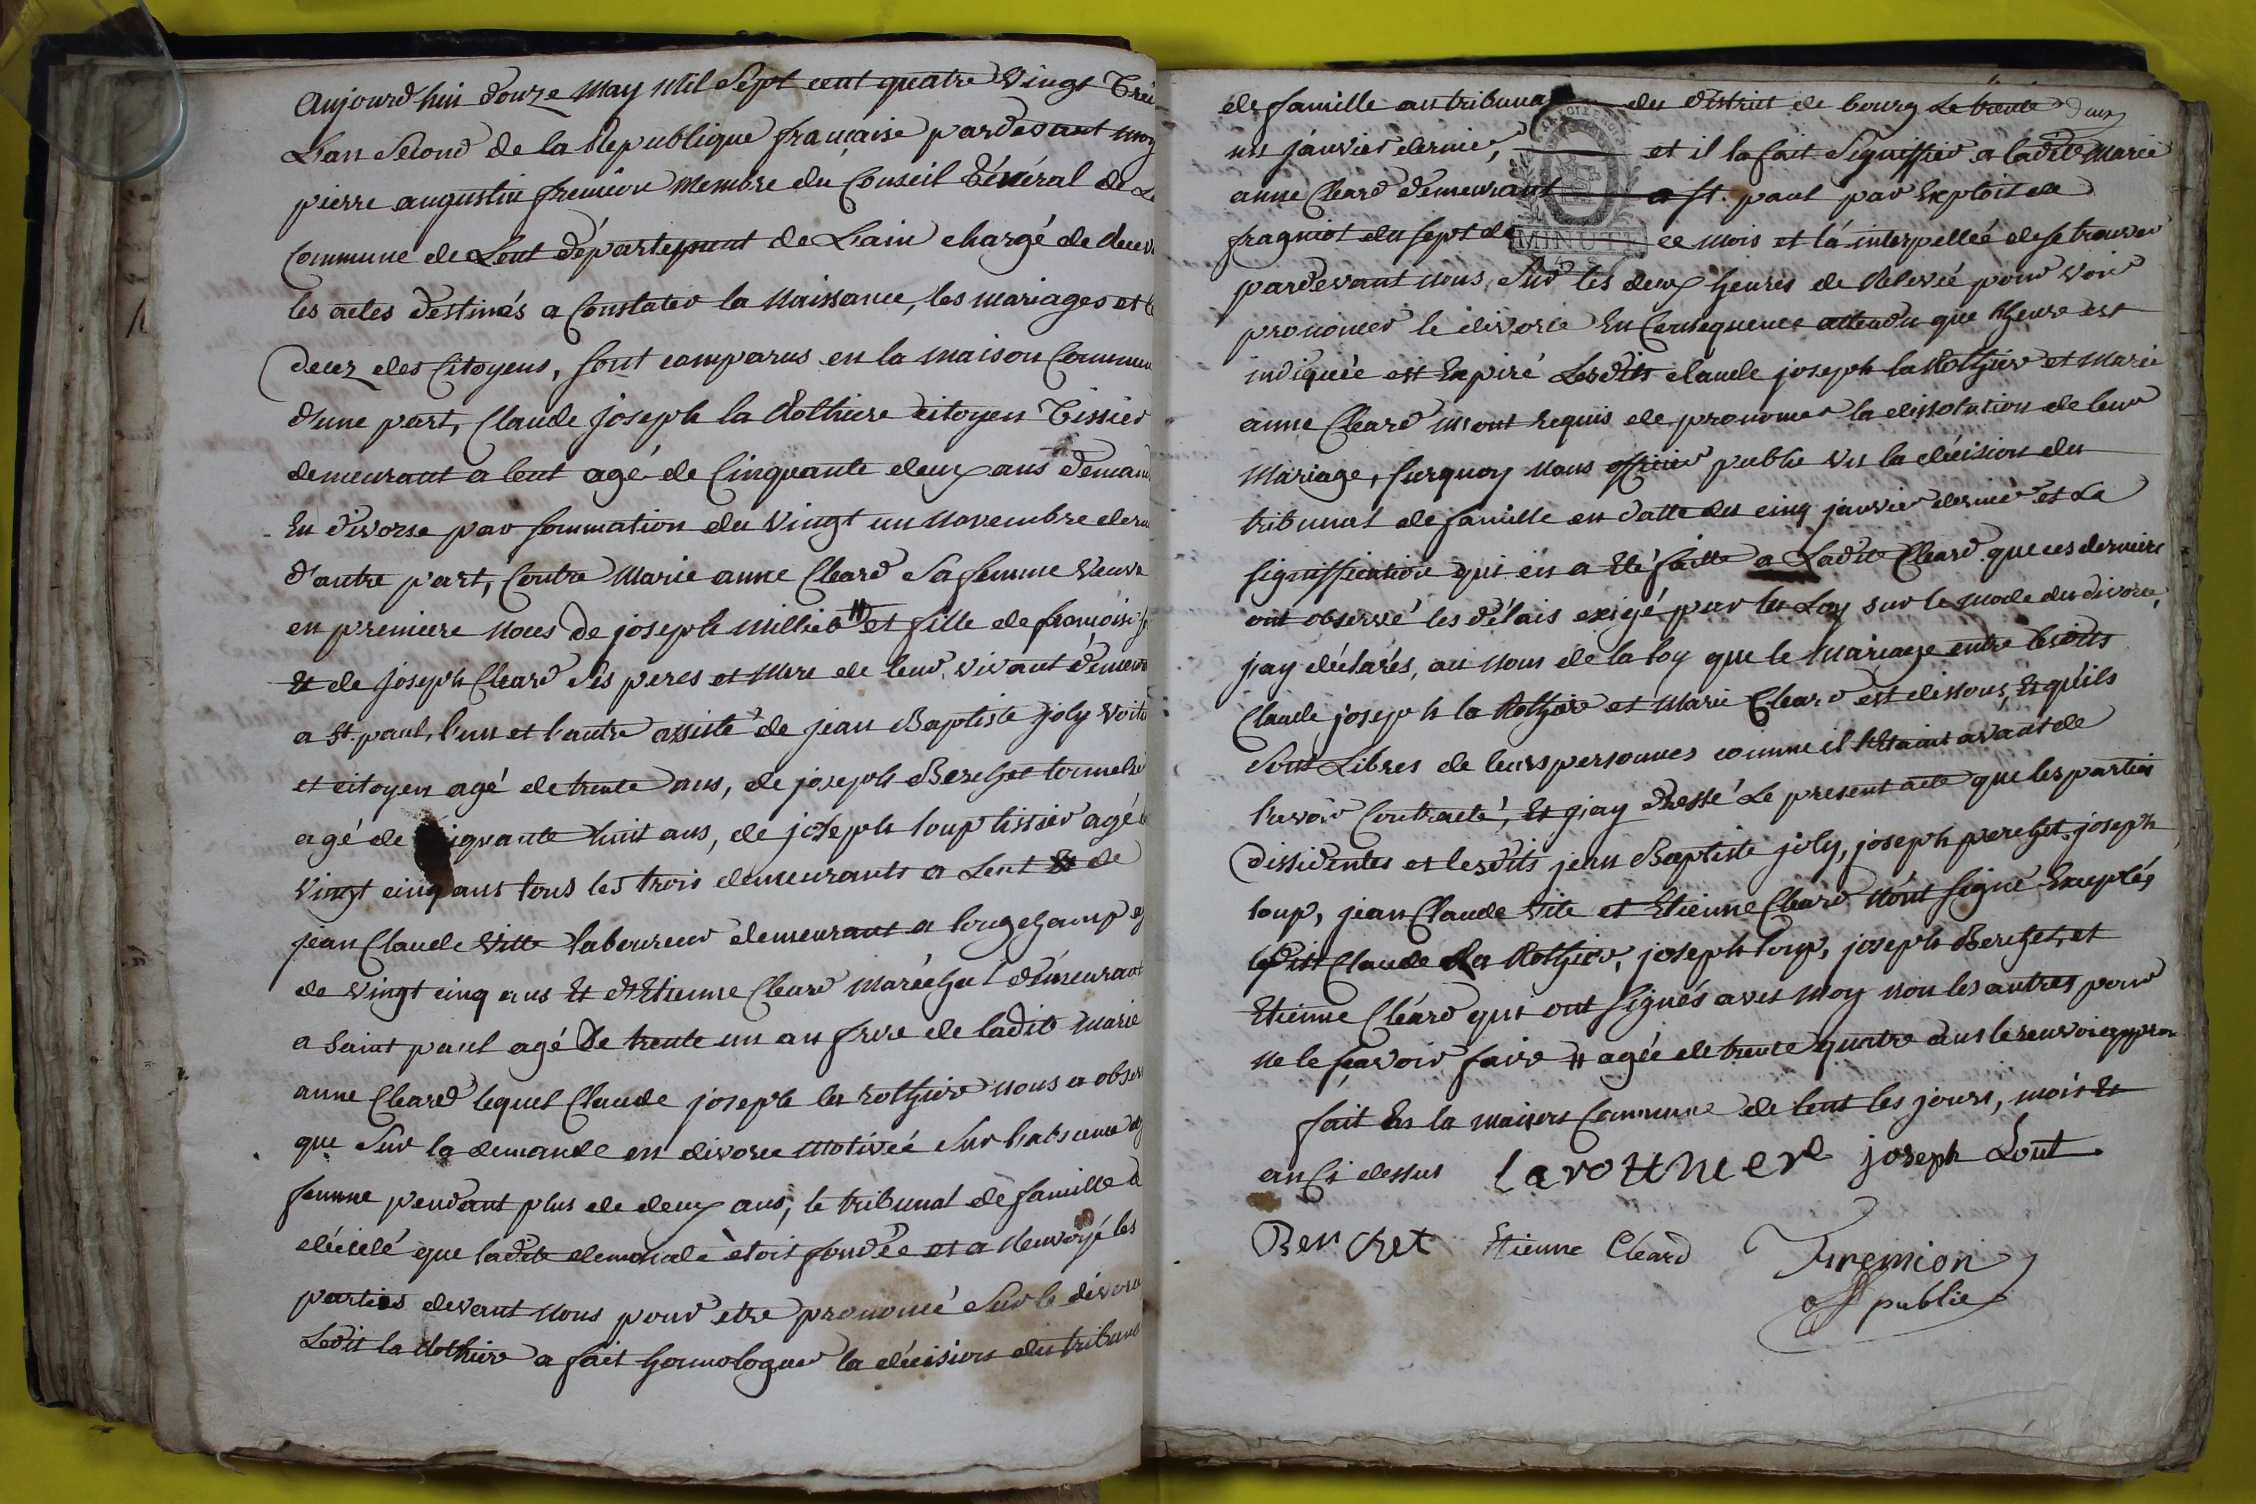 Aujourd'hui douze May Mil Sept cent quatre Vingt Trei
L'an Second de la Republique française pardevant moy
pierre augustin fremion Membre du Conseil Général de La
Commune de Lent département de L'ain chargé de
les actes destinés a Constater la Naissance, les mariages et
decez des Citoyens, sont comparus en la maison Commun
d'une part, Claude joseph la Rothiere citoyen Tissier
demeurant a lent agé de Cinquante deux ans deman
En divorse par sommation du Vingt un Novembre dern
d'autre part, Contre Marie anne Cleard Sa femme Veuve
en premiere Noces de joseph Millet # et fille de françoise
Et de joseph Cleard Ses peres et Mere de leur vivant demeur
a St. paul, l'un et l'autre assisté de jean Baptiste joly Voitu
et citoyen agé de trente ans, de joseph Berchet
agé de iquante huit ans, de joseph loup tissier agé
Vingt cinq ans tous les trois demeurants a Lent Et de
jean Claude Vitte laboureur demeurant a longchamp
de Vingt cinq ans Et d'Etienne Cleard Maréchal demeurant
a Saint paul agé De trente un an frere de ladite Marie
anne Cleard lequel Claude joseph la rothiere Nous a obser
que Sur la demande en divorce Motivée Sur l'absence
femme pendant plus de deux ans, le tribunal de famille
décidé que ladite demande etoit fondée et a Renvoyé les
parties devant Nous pour etre prononcé Sur le divorce
Ledit la Rothiere a fait homologuer la décision du tribunal
de famille au tribunal du district de bourg Le trente
un janvier dernier, et il la fait Signiffier a ladite Marie
anne Cleard demeurant a St. paul par Exploit de
fragniot du sept de ce Mois et l'a interpellée de se trouver
MINUTE
pardevant Nous, Sur les deux heures de Relevée pour Voir
prononcer le divorce En Consequence attendu que l'heure est
indiquée est Expiré Lesdits claude joseph la Rothier et Marie
anne Cleard M'ont requis de prononcer la dissolution de leur
Mariage, Surquoy Nous officier public vu la décision du
tribunal de famille en datte du cinq janvier dernier et La
signiffication qui en a Eté faitte a Ladite Cleard que ces derniers
ont observé les délais exigé par la Loy sur le mode du divorce,
j'ay déclarés, au Nom de la loy que le Mariage entre lesdits
Claude joseph la Rothiere et Marie Cleard est dissous, Et qu'ils
Sont Libres de leurs personnes comme il l'Etaint avant de
l'avoir Contracté, Et j'ay dressé Le present acte que les parties
dissidentes et lesdits jean Baptiste joly, joseph perchet, joseph
loup, jean Claude Vite et Etienne Cleard N'ont signé Exceptés
ledit Claude La Rothier, joseph loup, joseph Berchet, et
Etienne Cléard qui ont signés avec Moy non les autres pour
ne le sçavoir faire # agée de trente quatre ans le renvoi appro
fait En la maison Commune de lent les jours, mois Et
an Ci dessus larottner joseph Lout
Berchet Etienne Cleard Fremion
off public